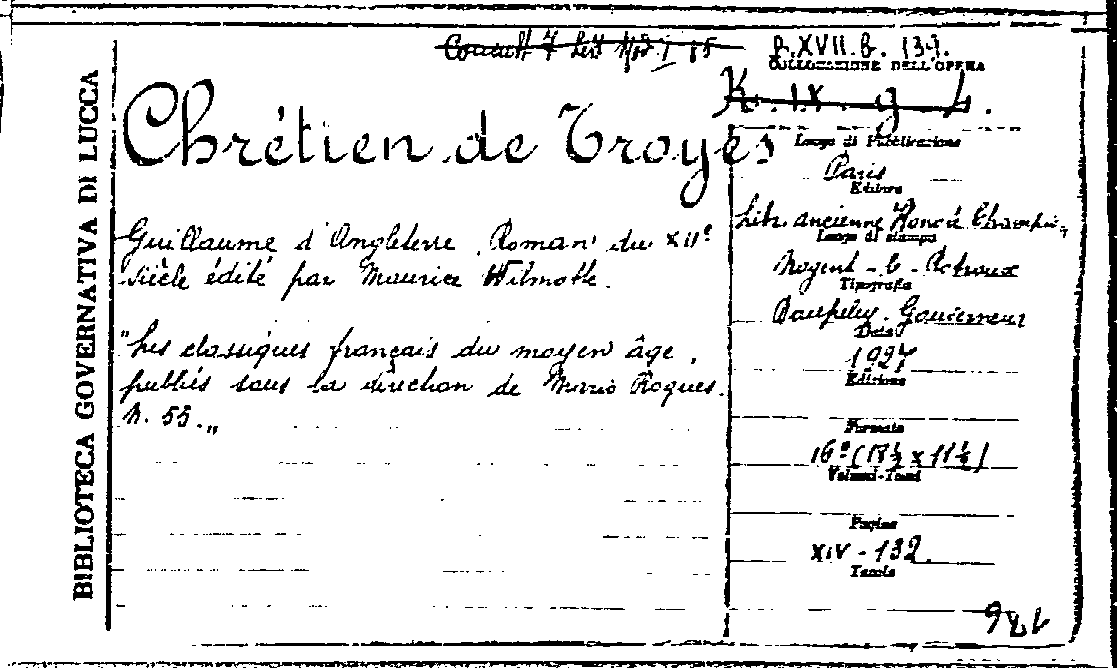 R.XVII.B. 137.
COLLOCAZIONE DELL'OPERA
K. IX. g 4.
BIBLIOTECA GOVERNATIVA DI LUCCA
Chrétien de Troyes
Guillaume d'Angleterre. Roman du XIIe
siècle édité par Maurice Wilmotte.
"Les classiques français du moyen âge,
publiés sous la direction de Mario Roques.
N. 55.„
Luogo di Pubblicazione
Paris
Editore
Libr. ancienne Honoré Champion
Luogo di stampa
Nogent-le-Rotrou
Tipografia
Daupeley-Gouverneur
Data
1927
Edizione
Formato
16° (18½ x 11½)
Volumi-Tomi
Pagine
XIV-132.
Tavole